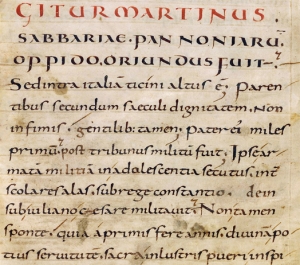 GITUR MARTINUS
SABBARIAE · PANNONIARŪ
OPPIDO, ORIUNDUS FUIT·
Sed intra italiā ticini altus ē; Paren
tibus secundum saeculi dignitatem, non
infimis, gentilib; tamen; Pater ei miles
primū post tribunus militū fuit; Ipse ar
matā militiā in adolescentia secutus, int̄
scolares alas, sub rege constantio, dein
sub iuliano caesare militauit; Non tamen
sponte, quia a primis fere annis, diuinā po
tius seruitute, sacra inlustris pueri inspi